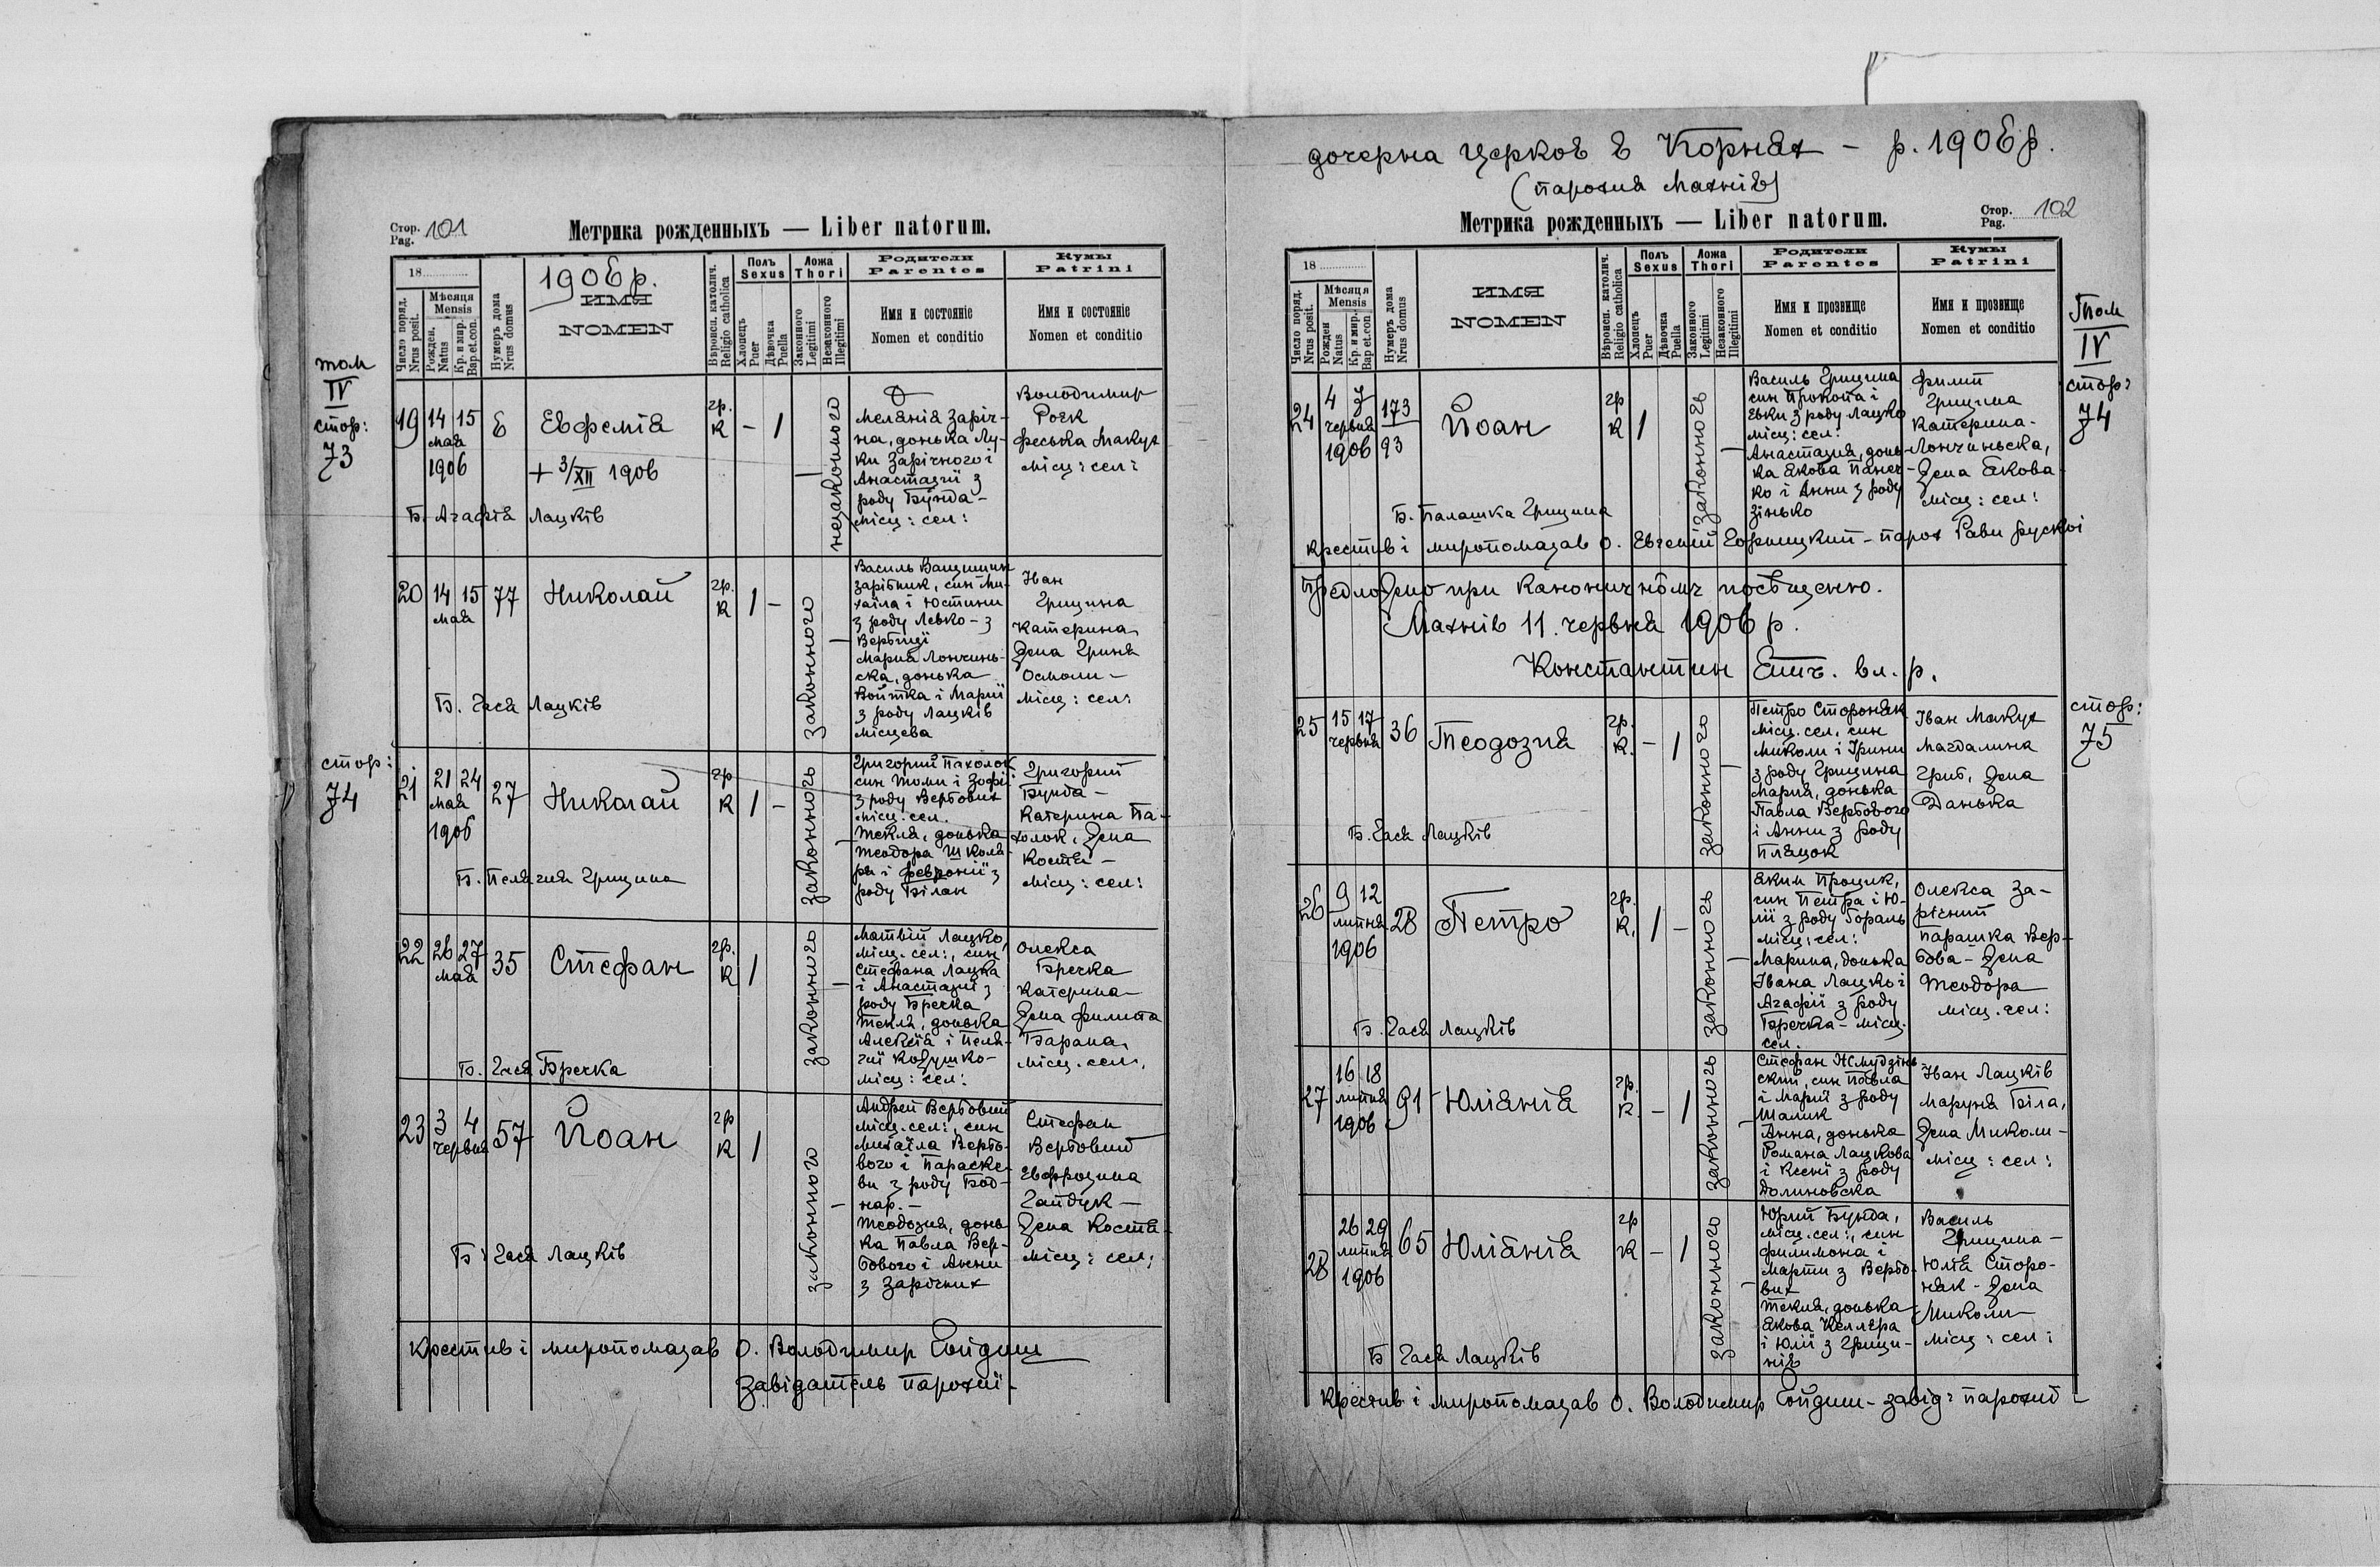 Стор. Pag. 101
Метрика рожденныхъ — Liber natorum.
18
1906р.
Число поряд. Nrus posit.
Мѣсяця Mensis
Рожден. Natus
Кр. и мир. Bap.et.con.
Нумеръ дома Nrus domus
ИМЯ
NOMEN
Вѣроисп. католич. Religio catholica
Полъ Sexus
Хлопецъ Puer
Дѣвочка Puella
Ложа Thori
Законного Legitimi
Незаконного Illegitimi
Родители Parentes
Имя и состоянiе
Nomen et conditio
Кумы Patrini
Имя и состоянiе
Nomen et conditio
том
IV
стор:
73
19
14 15
мая
1906
6
Евфемія
+ 3/XII 1906
гр.
К
– 1
незаконного
Меланія Заріч-
на, донька Лу-
ки Зарічного і
Анастазиї з
роду Бунда –
місц: сел:
Володимир
Роєк
Феська Макух
місц: сел:
Б. Агафія Лацків
20
14 15
мая
77
Николай
гр.
К
1 –
законного
Василь Ващишин
зарібник, син Ми-
хаіла і Юстини
з роду Левко – з
Вербиці
Мария Лончинь-
ска, донька
Войтка і Марії
з роду Лацків
місцева
Іван
Грицина
Катерина
Жена Гриня
Осмоли –
місц: сел:
Б. Гася Лацків
стор:
74
21
21 24
мая
1906
27
Николай
гр
К
1 –
законного
Григорий Пахолок
син Томи і Зофії
з роду Вербових
місц. сел.
Текля, донька
Теодора Школя-
ра і Февронії з
роду Білан
Григорий
Бунда –
Катерина Па-
холок, Жена
Костя –
місц: сел:
Б. Пелагия Грицина
22
26 27
мая
35
Стефан
гр.
К
1
законного
Матвій Лацко,
місц. сел:, син
Стефана Лацка
і Анастазиї з
роду Бречка
Текля, донька
Алексія і Пела-
гії Кожушко –
місц: сел:
Олекса
Бречка
Катерина –
Жена Филипа
Барана,
місц. сел:
Б. Гася Бречка
23
3 4
червня
57
Йоан
гр
К
1
законного
Андрей Вербовий
місц. сел:, син
Михаіла Вербо-
вого і Параске-
ви з роду Бод-
нар. –
Теодозия, донь-
ка Павла Вер-
бового і Анни
з Зарічних
Стефан
Вербовий
Евфрозина
Гайдук –
Жена Костя –
місц: сел:
Б: Гася Лацків
Крестив і миропомазав О. Володимир
Завідатель парохиї –
дочерна церков в Корнях – р. 1906р.
(парохия Махнів)
Метрика рожденныхъ — Liber natorum.
Стор. Pag. 102
18
Число поряд. Nrus posit.
Мѣсяця Mensis
Рожден Natus
Кр. и мир. Bap et.con.
Нумеръ дома Nrus domus
ИМЯ
NOMEN
Вѣроисп. католич. Religio catholica
Полъ Sexus
Хлопецъ Puer
Дѣвочка Puella
Ложа Thori
Законного Legitimi
Незаконного Illegitimi
Родители Parentes
Имя и прозвище
Nomen et conditio
Кумы Patrini
Имя и прозвище
Nomen et conditio
Том
IV
стор:
74
24
4 7
червня
1906
173
93
Йоан
гр
К
1
законного
Василь Грицина
син Прокопа і
Евки з роду Лацко
місц: сел:
Анастазия, донь-
ка Якова Панеч-
ко і Анни з роду
Зінько
Филип
Грицина
Катерина –
Лончиньска,
Жена Якова
місц: сел:
Б. Палашка Грицина
Крестив і миропомазав О. Евгений – парох Рави рускої
Предложено при каноничнôмъ посѣщеню.
Махнів 11. червня 1906 р.
Константин Епп. вл. р.
стор:
75
25
15 17
червня
36
Теодозия
гр.
К.
– 1
законного
Петро Стороняк
місц. сел, син
Миколи і Ірини
з роду Грицина
Мария, донька
Павла Вербового
і Анни з роду
Пляцок
Іван Макух
Магдалина
Гриб, Жена
Данька
Б. Гася Лацків
26
9 12
липня
1906
28
Петро
гр.
К.
1 –
законного
Яким Процик,
син Петра і Ю-
лії з роду Гораль
місц: сел:
Марина, донька
Івана Лацко і
Агафії з роду
Бречка – місц.
сел.
Олекса За-
річний
Парашка Вер-
бова – Жена
Теодора
місц. сел:
Б. Гася Лацків
27
16 18
липня
1906
91
Юліянія
гр.
К.
– 1
законного
Стефан Жмудзінь-
ский, син Павла
і Марії з роду
Шалик
Анна, донька
Романа Лацкова
і Ксенї з роду
Долиновска
Іван Лацків
Маруня Біла,
Жена Миколи –
місц: сел:
28
26 29
липня
1906
65
Юліянія
гр
К
– 1
законного
Юрий Бунда,
місц. сел:, син
Филимона і
Марти з Вербо-
вих
Текля, донька
Якова Келлєра
і Юлії з Грици-
нів
Василь
Грицина –
Юлія Сторо-
няк – Жена
Миколи
місц: сел:
Б Гася Лацків
Крестив і миропомазав О. Володимир – завід: парохиї –